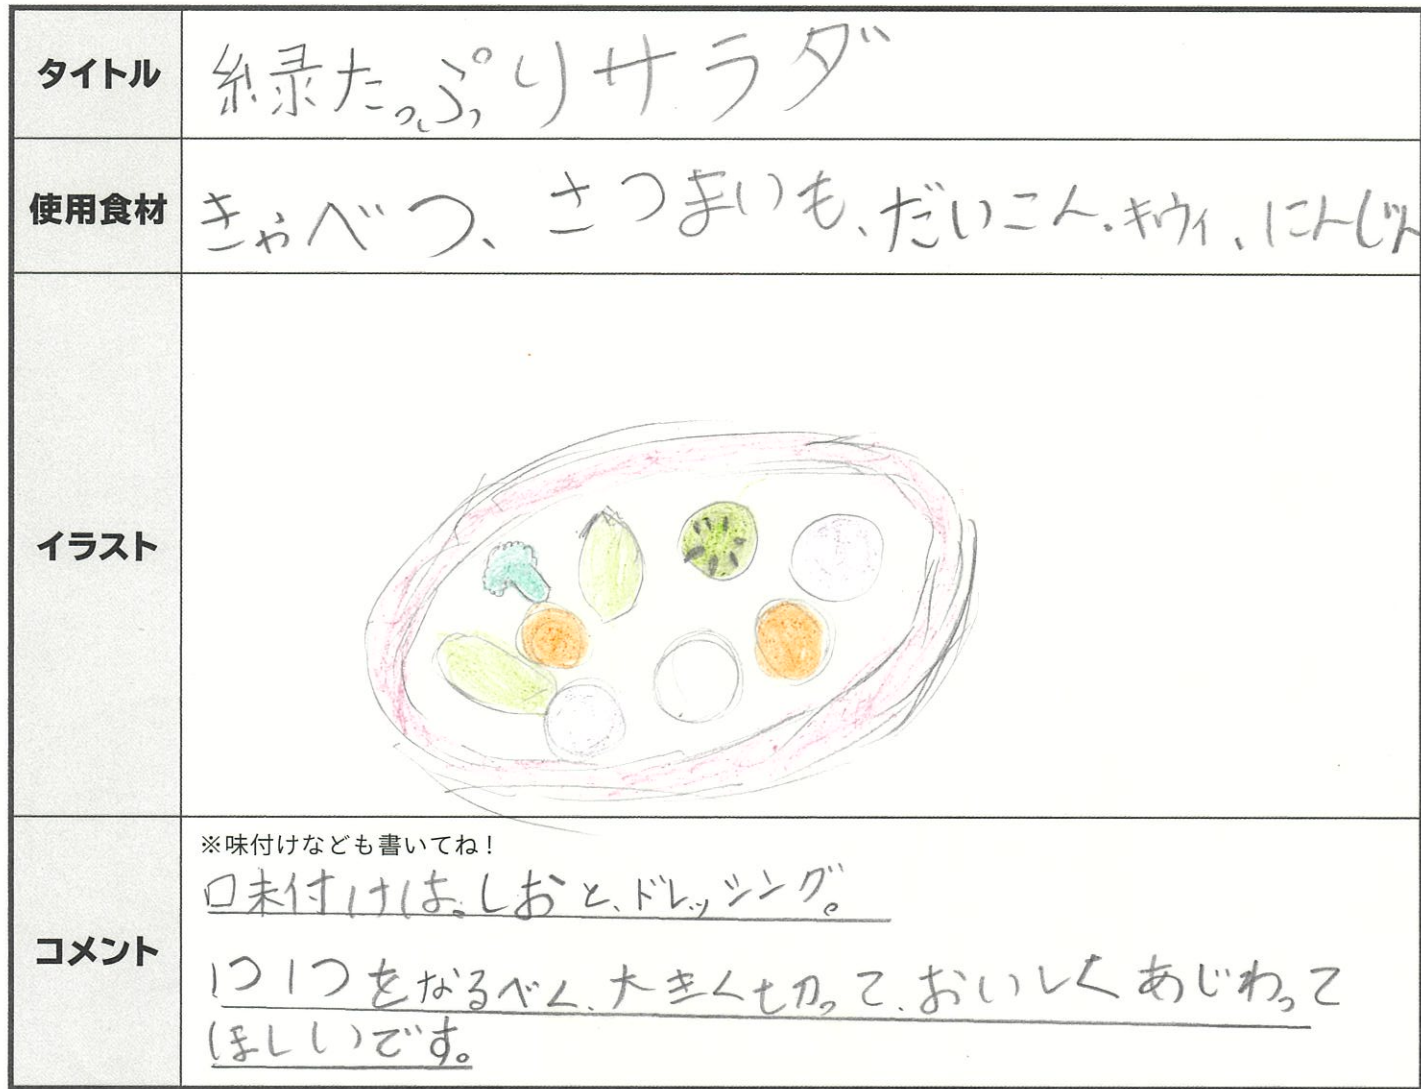 タイトル
緑たっぷりサラダ
使用食材
きゃべつ、さつまいも、だいこん、キウィ、にんじん
イラスト
コメント
※味付けなども書いてね！
味付けは、しおと、ドレッシング。
1つ1つをなるべく、大きく切って、おいしくあじわって
ほしいです。